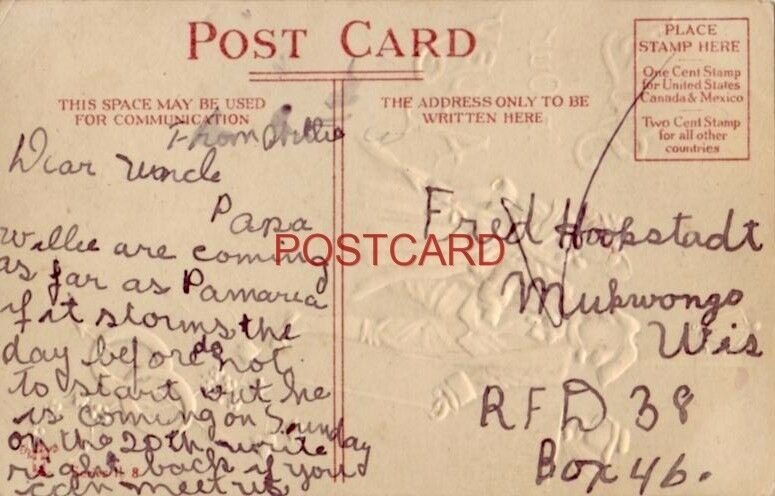 POST CARD
THIS SPACE MAY BE USED
FOR COMMUNICATION
THE ADDRESS ONLY TO BE
WRITTEN HERE
PLACE
STAMP HERE
One Cent Stamp
for United States
Canada & Mexico
Two Cent Stamp
for all other
countries
From Willie
Dear Uncle
Papa
Willie are coming
as far as Pamaria
if it storms the
day before do not
to start out he
is coming on Sunday
on the 20th write
right back if you
can meet us
Fred Hookstadt
Mukwongo
Wis
RFD 38
Box 46.
POSTCARD